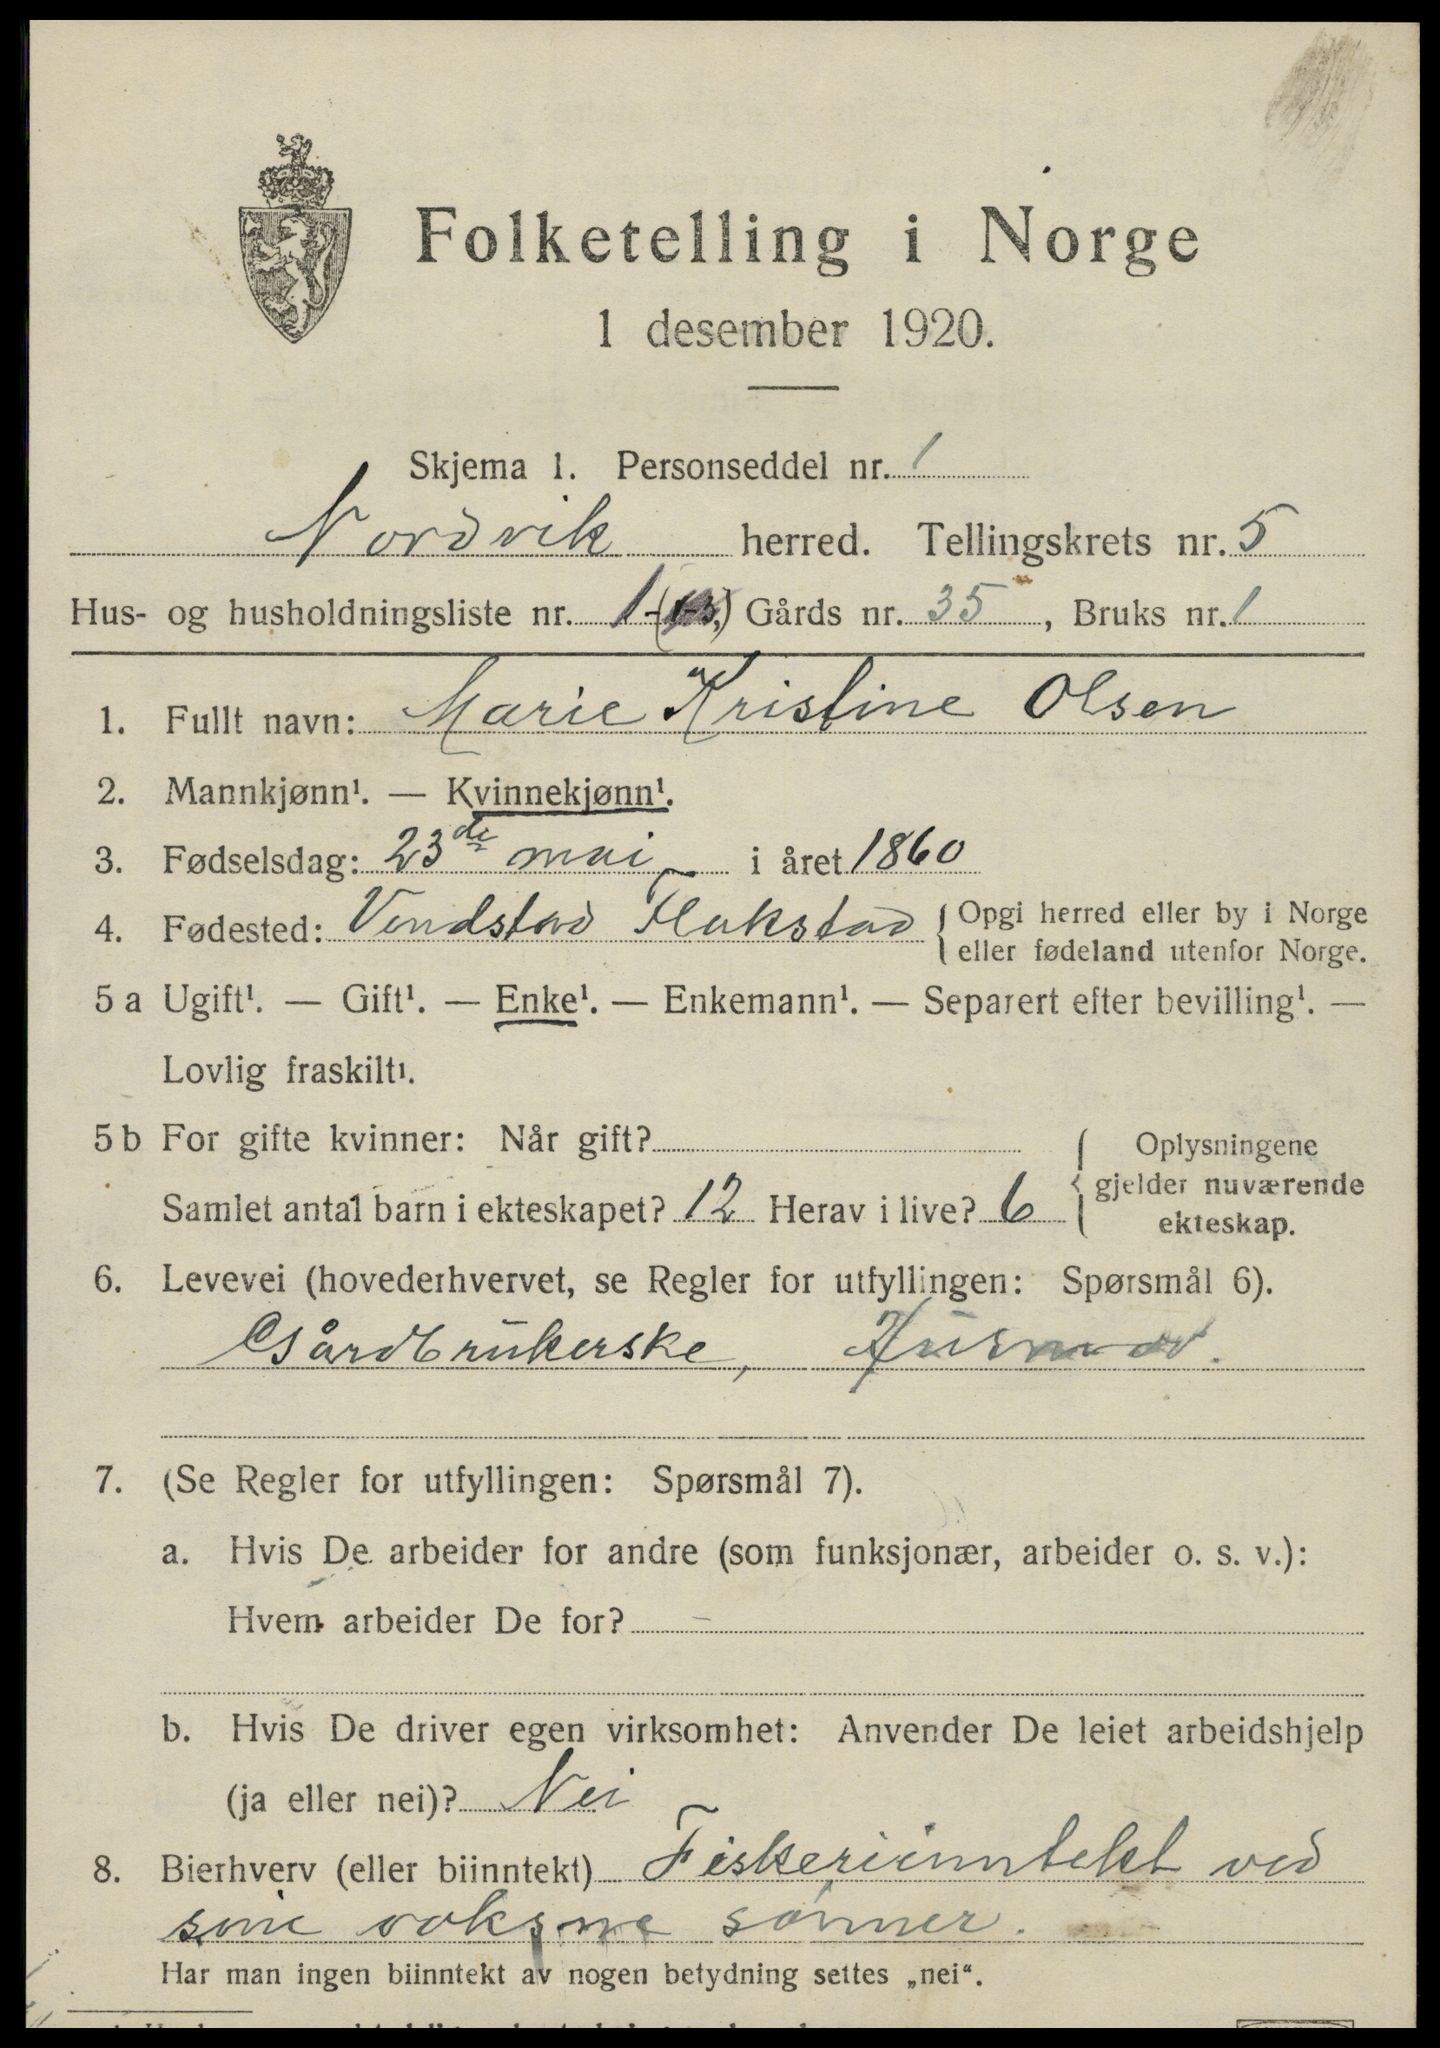 Folketelling i Norge
1 desember 1920.
Skjema 1. Personseddel nr. 1
Nordvik herred. Tellingskrets nr. 5
Hus- og husholdningsliste nr. 1 Gårds nr. 35, Bruks nr. 1
1. Fullt navn: Marie Kristine Olsen
2. Mannkjønn¹. — Kvinnekjønn¹.
3. Fødselsdag: 23de mai i året 1860
4. Fødested: Vendstad Flakstad { Opgi herred eller by i Norge
eller fødeland utenfor Norge.
5 a Ugift¹. — Gift¹. — Enke¹. — Enkemann¹. — Separert efter bevilling¹. —
Lovlig fraskilt¹.
5 b For gifte kvinner: Når gift? { Oplysningene
gjelder nuværende
ekteskap.
Samlet antal barn i ekteskapet? 12 Herav i live? 6
6. Levevei (hovederhvervet, se Regler for utfyllingen: Spørsmål 6).
Gårdbrukerske, Husmor.
7. (Se Regler for utfyllingen: Spørsmål 7).
a. Hvis De arbeider for andre (som funksjonær, arbeider o. s. v.):
Hvem arbeider De for? –
b. Hvis De driver egen virksomhet: Anvender De leiet arbeidshjelp
(ja eller nei)? Nei
8. Bierhverv (eller biinntekt) Fiskeriinntekt ved
sine voksne sönner.
Har man ingen biinntekt av nogen betydning settes „nei“.